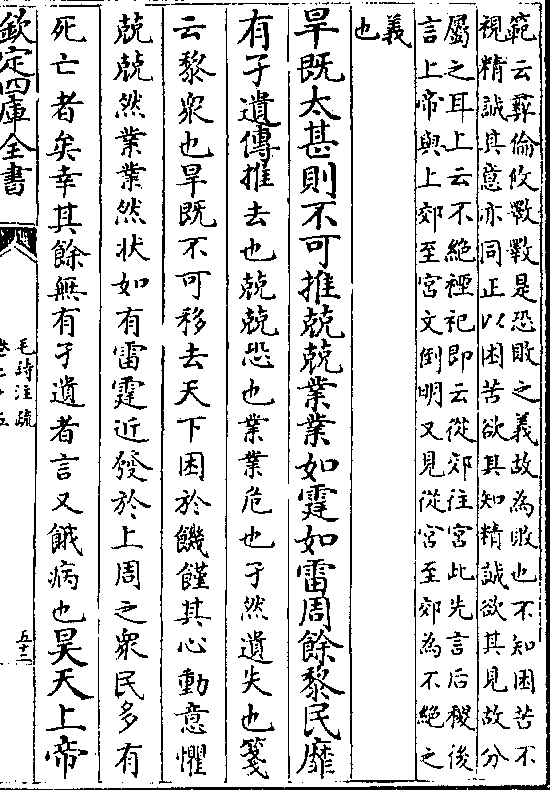 範云彛倫攸斁斁是恐敗之義故為敗也不知困苦不
視精誠其意亦同正以困苦欲其知精誠欲其見故分
屬之耳上云不絶禋祀即云從郊往宮此先言后稷後
言上帝與上郊至宮文倒明又見從宮至郊為不絶之
義
也
旱既太甚則不可推兢兢業業如霆如雷周餘黎民靡
有孑遺傳推去也兢兢恐也業業危也孑然遺失也箋
云黎衆也旱既不可移去天下困於饑饉其心動意懼
兢兢然業業然状如有雷霆近發於上周之衆民多有
死亡者矣幸其餘無有孑遺者言又餓病也昊天上帝
欽定四庫全書
毛詩注疏
五十二